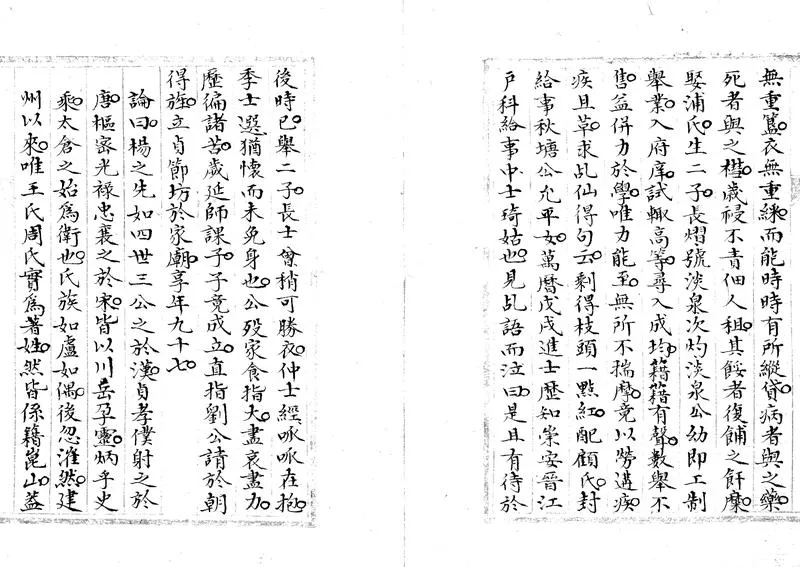 無重簋衣無重綵而能時時有所縱貸病者與之藥
死者與之槥歲祲不責佃人租其餒者復餔之餠糜
娶浦氏生二子長熠號淡泉次灼淡泉公幼即工制
舉業入府庠試輒高等尋入成均籍籍有聲數舉不
售益併力於學唯力能至無所不揣摩竟以勞遘疾
疾且革求乩仙得句云剩得枝頭一點紅配顧氏封
給事秋塘公允平女萬曆戊戌進士歷知崇安晉江
戶科給事中士琦姑也見乩語而泣曰是且有待於
後時已舉二子長士曾稍可勝衣仲士經呱呱在抱
季士選猶懷而未免身也公歿家食指大盡哀盡力
歷徧諸苦歲延師課子子竟成立直指劉公請於朝
得旌立貞節坊於家廟享年九十七
論曰楊之先如四世三公之於漢貞孝僕射之於
唐樞密光祿忠襄之於宋皆以川岳孕靈炳乎史
乘太倉之始為衛也氏族如盧如偶後忽漼然建
州以來唯王氏周氏實為著姓然皆係籍崑山蓋